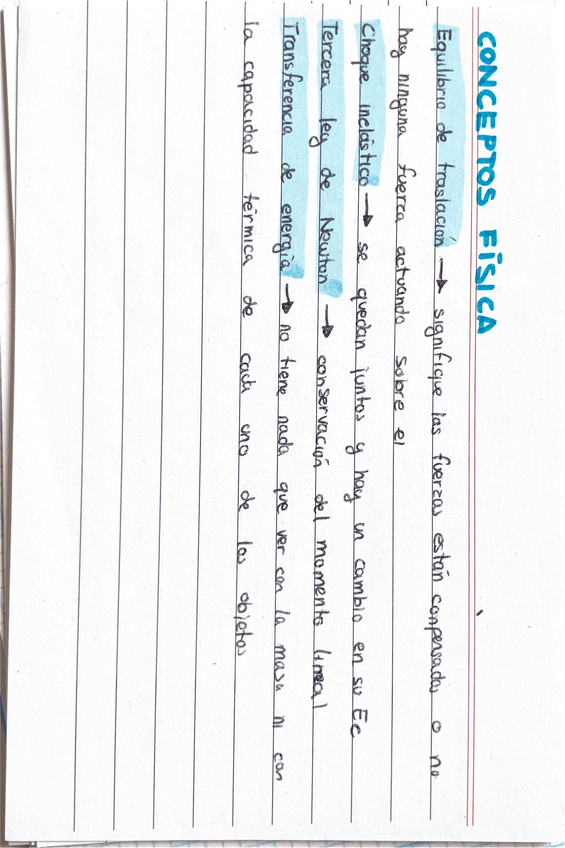 CONCEPTOS FÍSICA
Equilibrio de traslación → significa las fuerzas están conpensadas o no
hay ninguna fuerza actuando sobre el
Choque inelástico → se quedan juntos y hay un cambio en su Ec
Tercera ley de Newton → conservación del momento lineal
Transferencia de energía → no tiene nada que ver con la masa ni con
la capacidad térmica de cada uno de los objetos